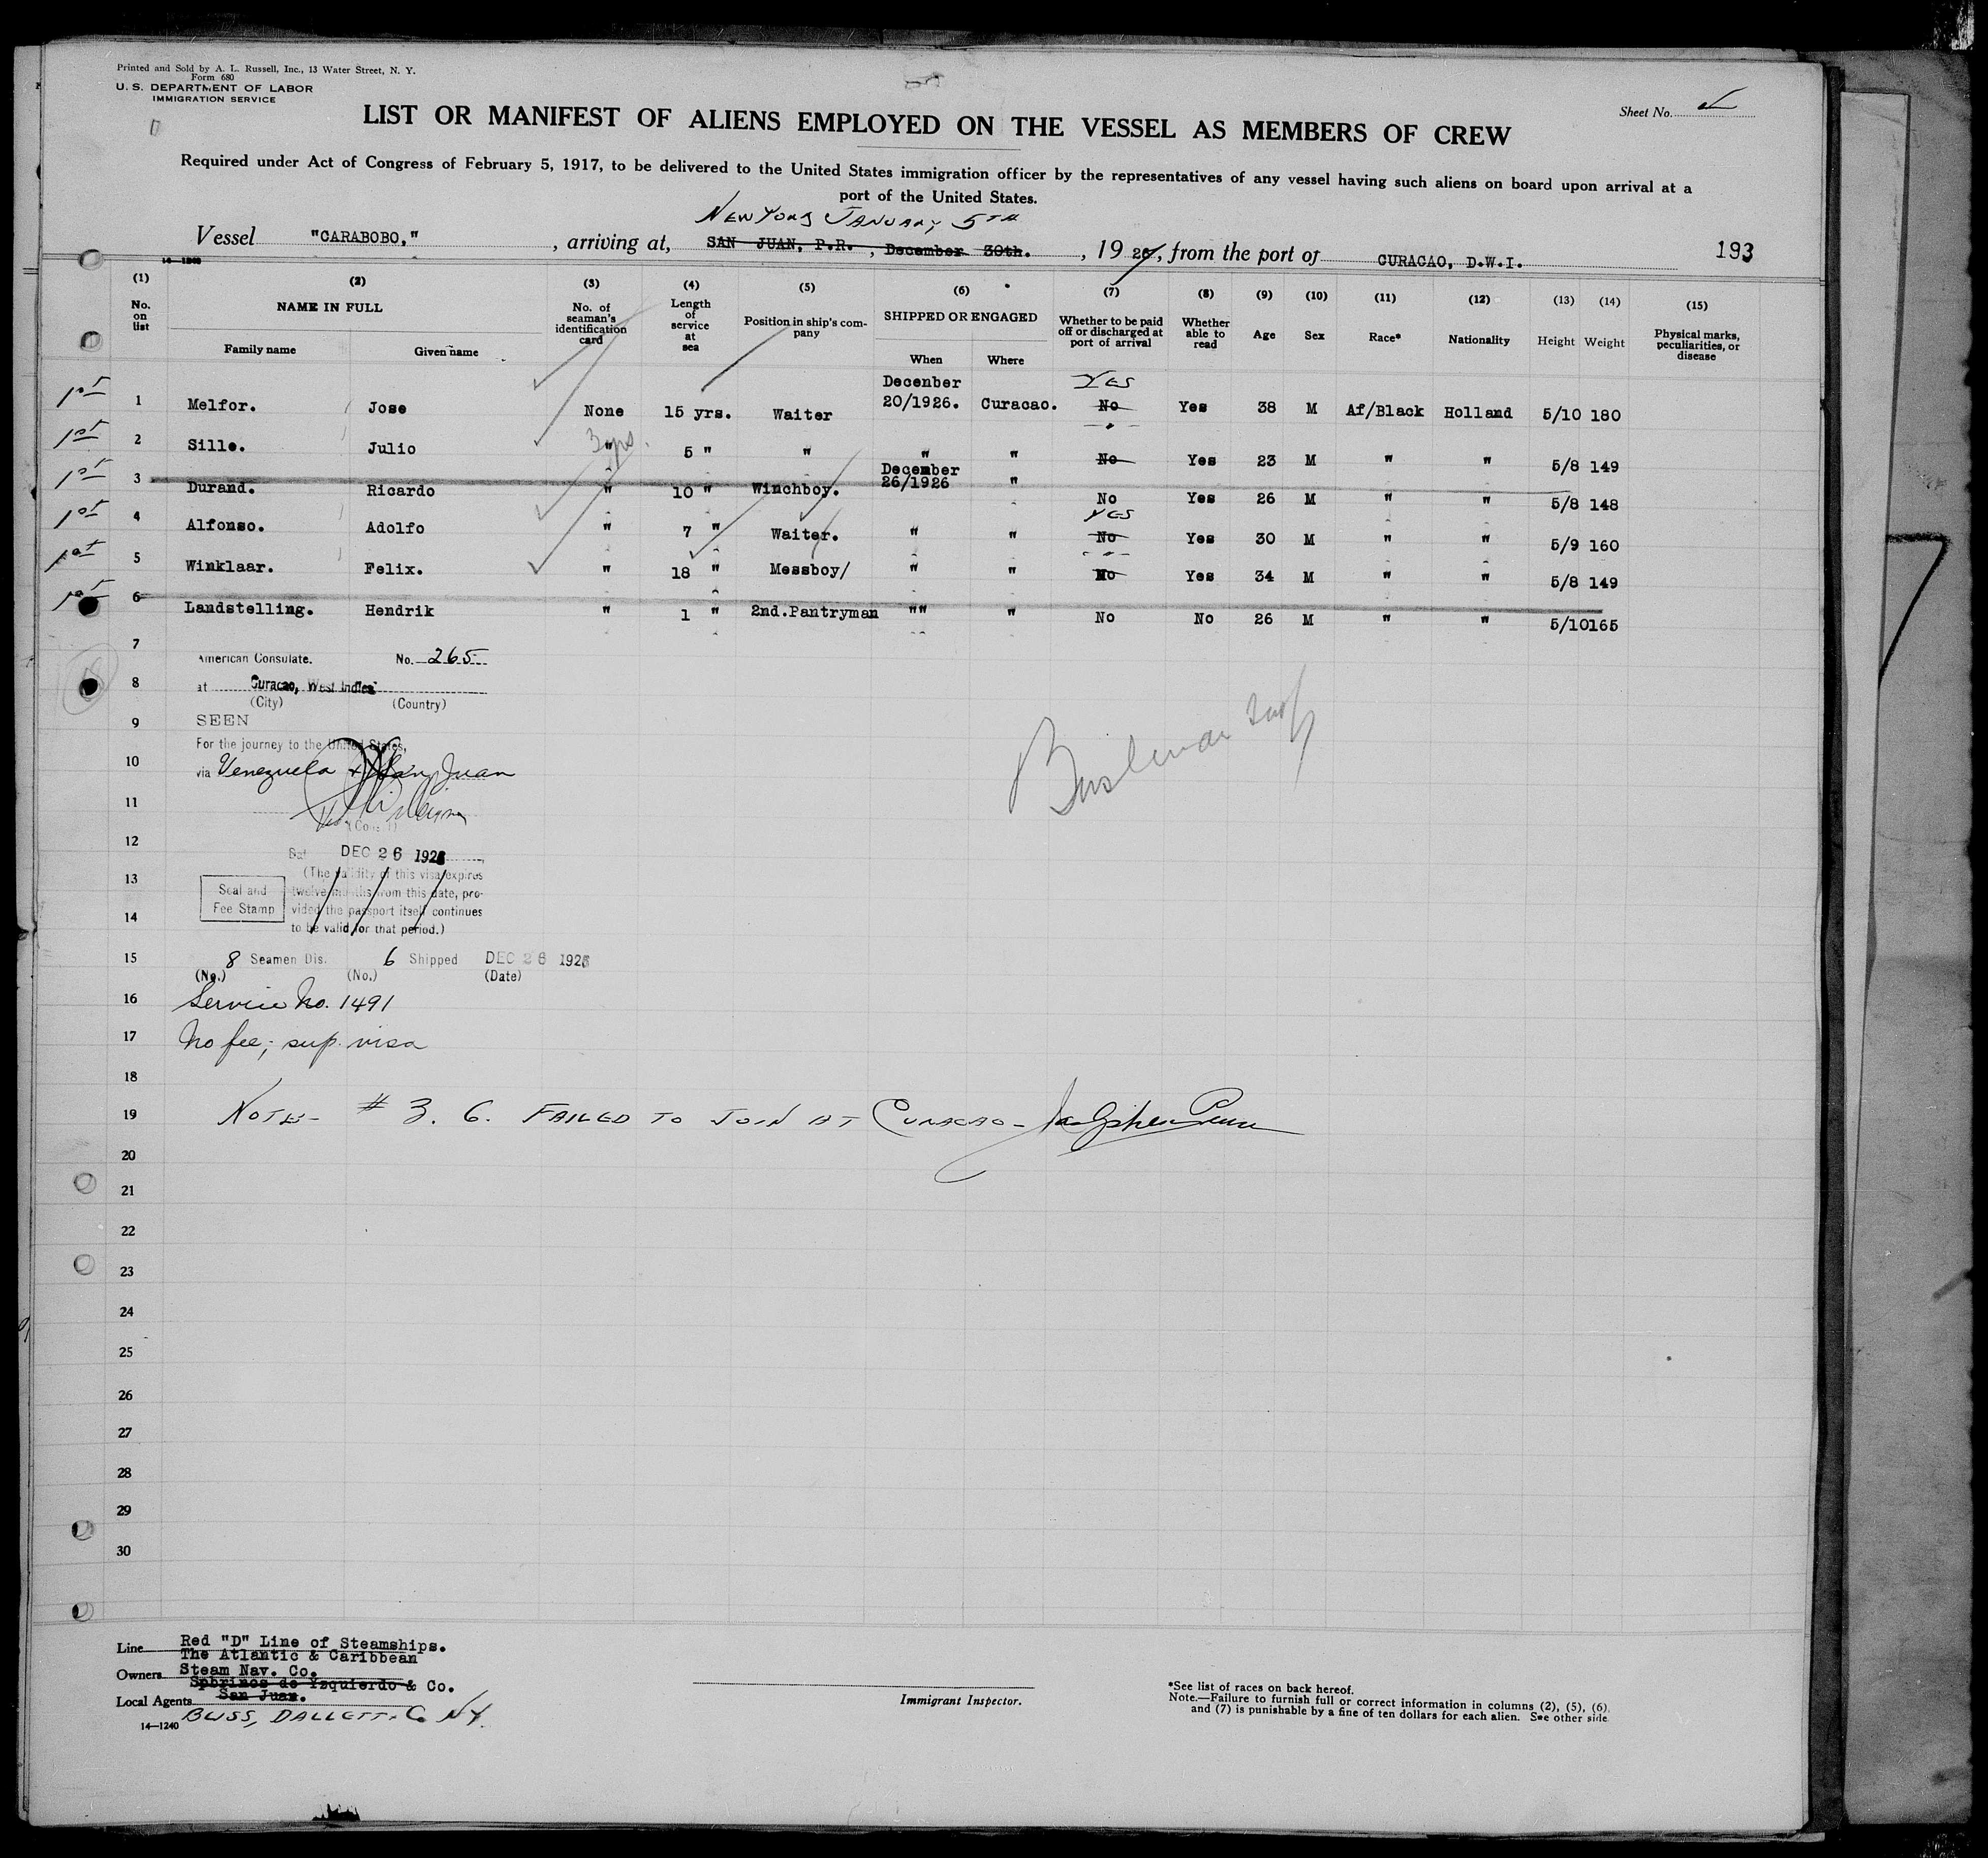 Printed and Sold by A. L. Russell, Inc., 13 Water Street, N. Y.
Form 680
U. S. DEPARTMENT OF LABOR
IMMIGRATION SERVICE
Sheet No.
LIST OR MANIFEST OF ALIENS EMPLOYED ON THE VESSEL AS MEMBERS OF CREW
Required under Act of Congress of February 5, 1917, to be delivered to the United States immigration officer by the representatives of any vessel having such aliens on board upon arrival at a
port of the United States.
NEW YORK JANUARY 5TH
Vessel "CARABOBO," , arriving at, SAN JUAN, P.R. , December 30th. , 19 26, from the port of CURACAO, D.W.I. 193
14—1240
(1) (2) (3) (4) (5) (6) (7) (8) (9) (10) (11) (12) (13) (14) (15)
No. on list NAME IN FULL Family name Given name No. of seaman's identification card Length of service at sea Position in ship's company SHIPPED OR ENGAGED When Where Whether to be paid off or discharged at port of arrival Whether able to read Age Sex Race* Nationality Height Weight Physical marks, peculiarities, or disease
December YES
1st 1 Melfor. Jose None 15 yrs. Waiter 20/1926. Curacao. No Yes 38 M Af/Black Holland 5/10 180
3 yrs.
1st 2 Sille. Julio " 5 " " " " No Yes 23 M " " 5/8 149
December
1st 3 Durand. Ricardo " 10 " Winchboy. 26/1926 " No Yes 26 M " " 5/8 148
YES
1st 4 Alfonso. Adolfo " 7 " Waiter. " " No Yes 30 M " " 5/9 160
1st 5 Winklaar. Felix. " 18 " Messboy/ " " No Yes 34 M " " 5/8 149
1st 6 Landstelling. Hendrik " 1 " 2nd.Pantryman "" " No No 26 M " " 5/10 165
7
American Consulate. No. 265
8 at Curacao, West Indies
(City) (Country)
9 SEEN
For the journey to the United States,
10 via Venezuela + San Juan
11
(Consul)
12 Dat DEC 26 1926
13 (The validity of this visa expires
Seal and Fee Stamp twelve months from this date, pro-
14 vided the passport itself continues
to be valid for that period.)
15 8 Seamen Dis. 6 Shipped DEC 26 1926
(No.) (No.) (Date)
16 Service No. 1491
17 No fee; sup. visa
18
19 NOTE- # 3. 6. FAILED TO JOIN AT CURACAO-
20
21
22
23
24
25
26
27
28
29
30
Line Red "D" Line of Steamships.
The Atlantic & Caribbean
Owners Steam Nav. Co.
Sobrinos de Yzquierdo & Co.
Local Agents San Juan.
14—1240 BLISS, DALLETT & Co. N.Y.
Immigrant Inspector.
*See list of races on back hereof.
Note.—Failure to furnish full or correct information in columns (2), (5), (6),
and (7) is punishable by a fine of ten dollars for each alien. See other side.